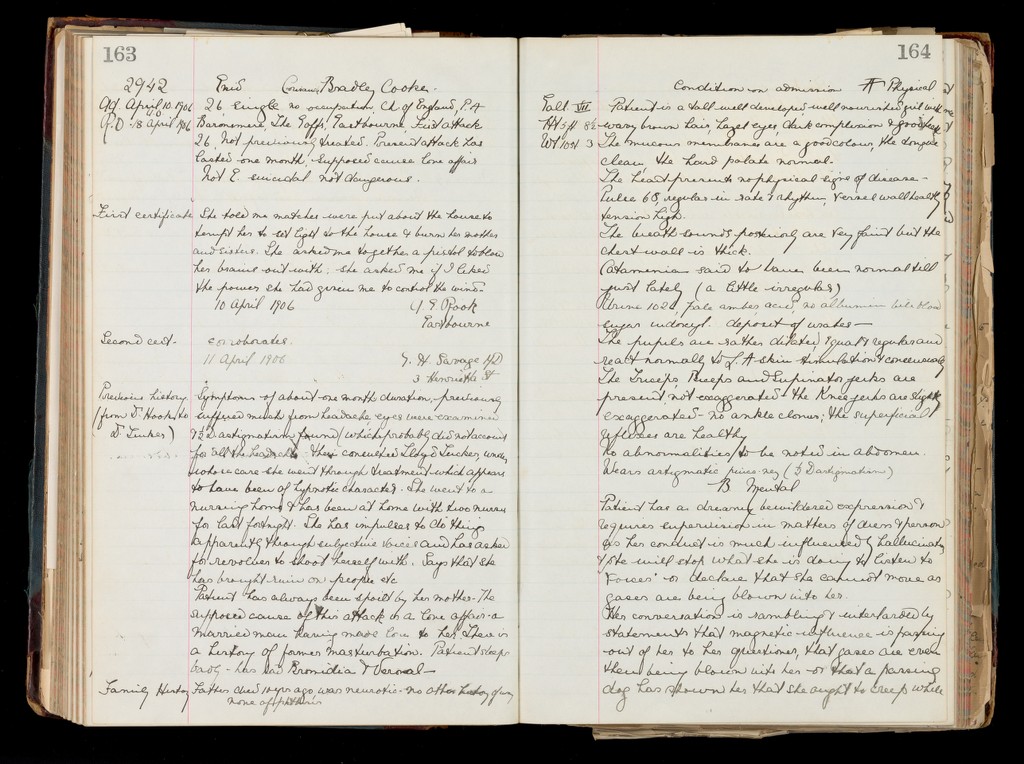 163
2942 Enid Bradley Cooke.
Ad. April 10. 1906 26 single no occupation, Ch of England, P.A
R.O 18 April 1906 The Goffs, Eastbourne, First attack
26. Not previously treated. Present attack has
lasted one month, supposed cause love affair
Not E. suicidal not dangerous.
First certificate She told me matches were put about the house to
tempt her to set light to the house & burn her mother
and sisters. She asked me to get her a pistol to blow
her brains out with. She asked me if I liked
the power she had given me to control the winds.
10 April 1906
Eastbourne
Second cert. corroborates.
11 April 1906 G. H. Savage MD
3 Henrietta St
Previous history Symptoms of about one month duration, previously
(from Dr to suffered much from headache, eyes were examined
Dr ) astigmatism found (which probably did not account
for all the headache. Then consulted Lloyd Tuckey, under
whose care she went through treatment which appears
to have been of hypnotic character. She went to a
nursing home & has been at home with two nurses
for last fortnight. She has impulses to do things
apparently through subjective voices and has asked
for revolver to shoot herself with. Says that she
has brought ruin on people etc
Patient has always been spoilt by her mother. The
supposed cause of this attack is a love affair - a
married man having made love to her. There is
a history of former masturbation. Patient sleeps
badly - has had Bromidia & Veronal -
Family History Father died 10 yrs ago was neurotic - no other history of any
none of phthisis
164
Condition on admission A Physical
Patient is a tall well developed well nourished girl with
Ht 5 ft 8½ wavy brown hair, hazel eyes, dark complexion & good
Wt 10st 3 The mucous membranes are a good colour, the tongue
clean, the hard palate normal.
The heart presents no physical signs of disease -
Pulse 68, regular in rate & rhythm, vessel wall healthy
tension high.
The breath sounds posteriorly are very faint but the
chest wall is thick.
Catamenia said to have been normal till
just lately (a little irregular)
Urine 1020, pale amber, acid, no albumin bile blood
sugar indoxyl. deposit of urates -
The pupils are rather dilated, equal & regular and
react normally to L. A skin stimulation & consensually
The Triceps, Biceps and Supinator jerks are
present not exaggerated & the Knee jerks are slightly
exaggerated - no ankle clonus, the superficial
reflexes are healthy
No abnormalities to be noted in abdomen.
Wears astigmatic pince-nez
B Mental
Patient has a dreamy bewildered expression &
requires supervision in matters of dress & person
as her conduct is much influenced by hallucinations
& she will stop what she is doing to listen to
"voices" or declare that she cannot move as
gases are being blown into her.
Her conversation is rambling & interlarded by
statements that magnetic influence is passing
out of her to her questioner, that gases are even
then being blown into her - or that a passing
dog has shown her that she ought to creep while